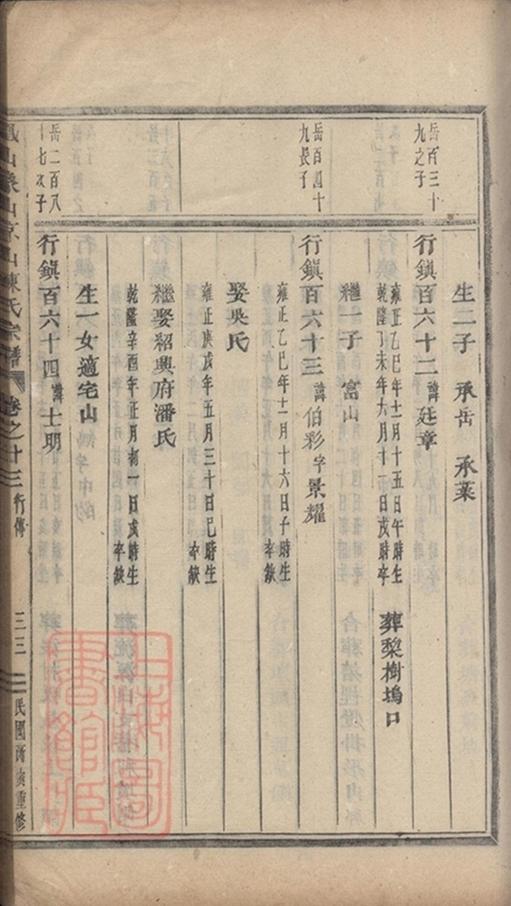 生二子 承岳 承業
岳百三十
九之子
行鎮百六十二諱廷章
雍正乙巳年十二月十五日午時生
乾隆丁未年六月十一日戌時卒 葬梨樹塢口
繼一子 富山
岳百四十
九長子
行鎮百六十三諱伯彩字景耀
雍正乙巳年十一月十六日子時生
卒缺
娶吳氏
雍正庚戌年五月三十日巳時生
卒缺
繼娶紹興府潘氏
乾隆辛酉年正月初一日戌時生
卒缺
生一女適宅山
岳二百八
十七次子
行鎮百六十四諱士明
山陳氏宗譜 卷之十三 行傳 三三 民國 重修